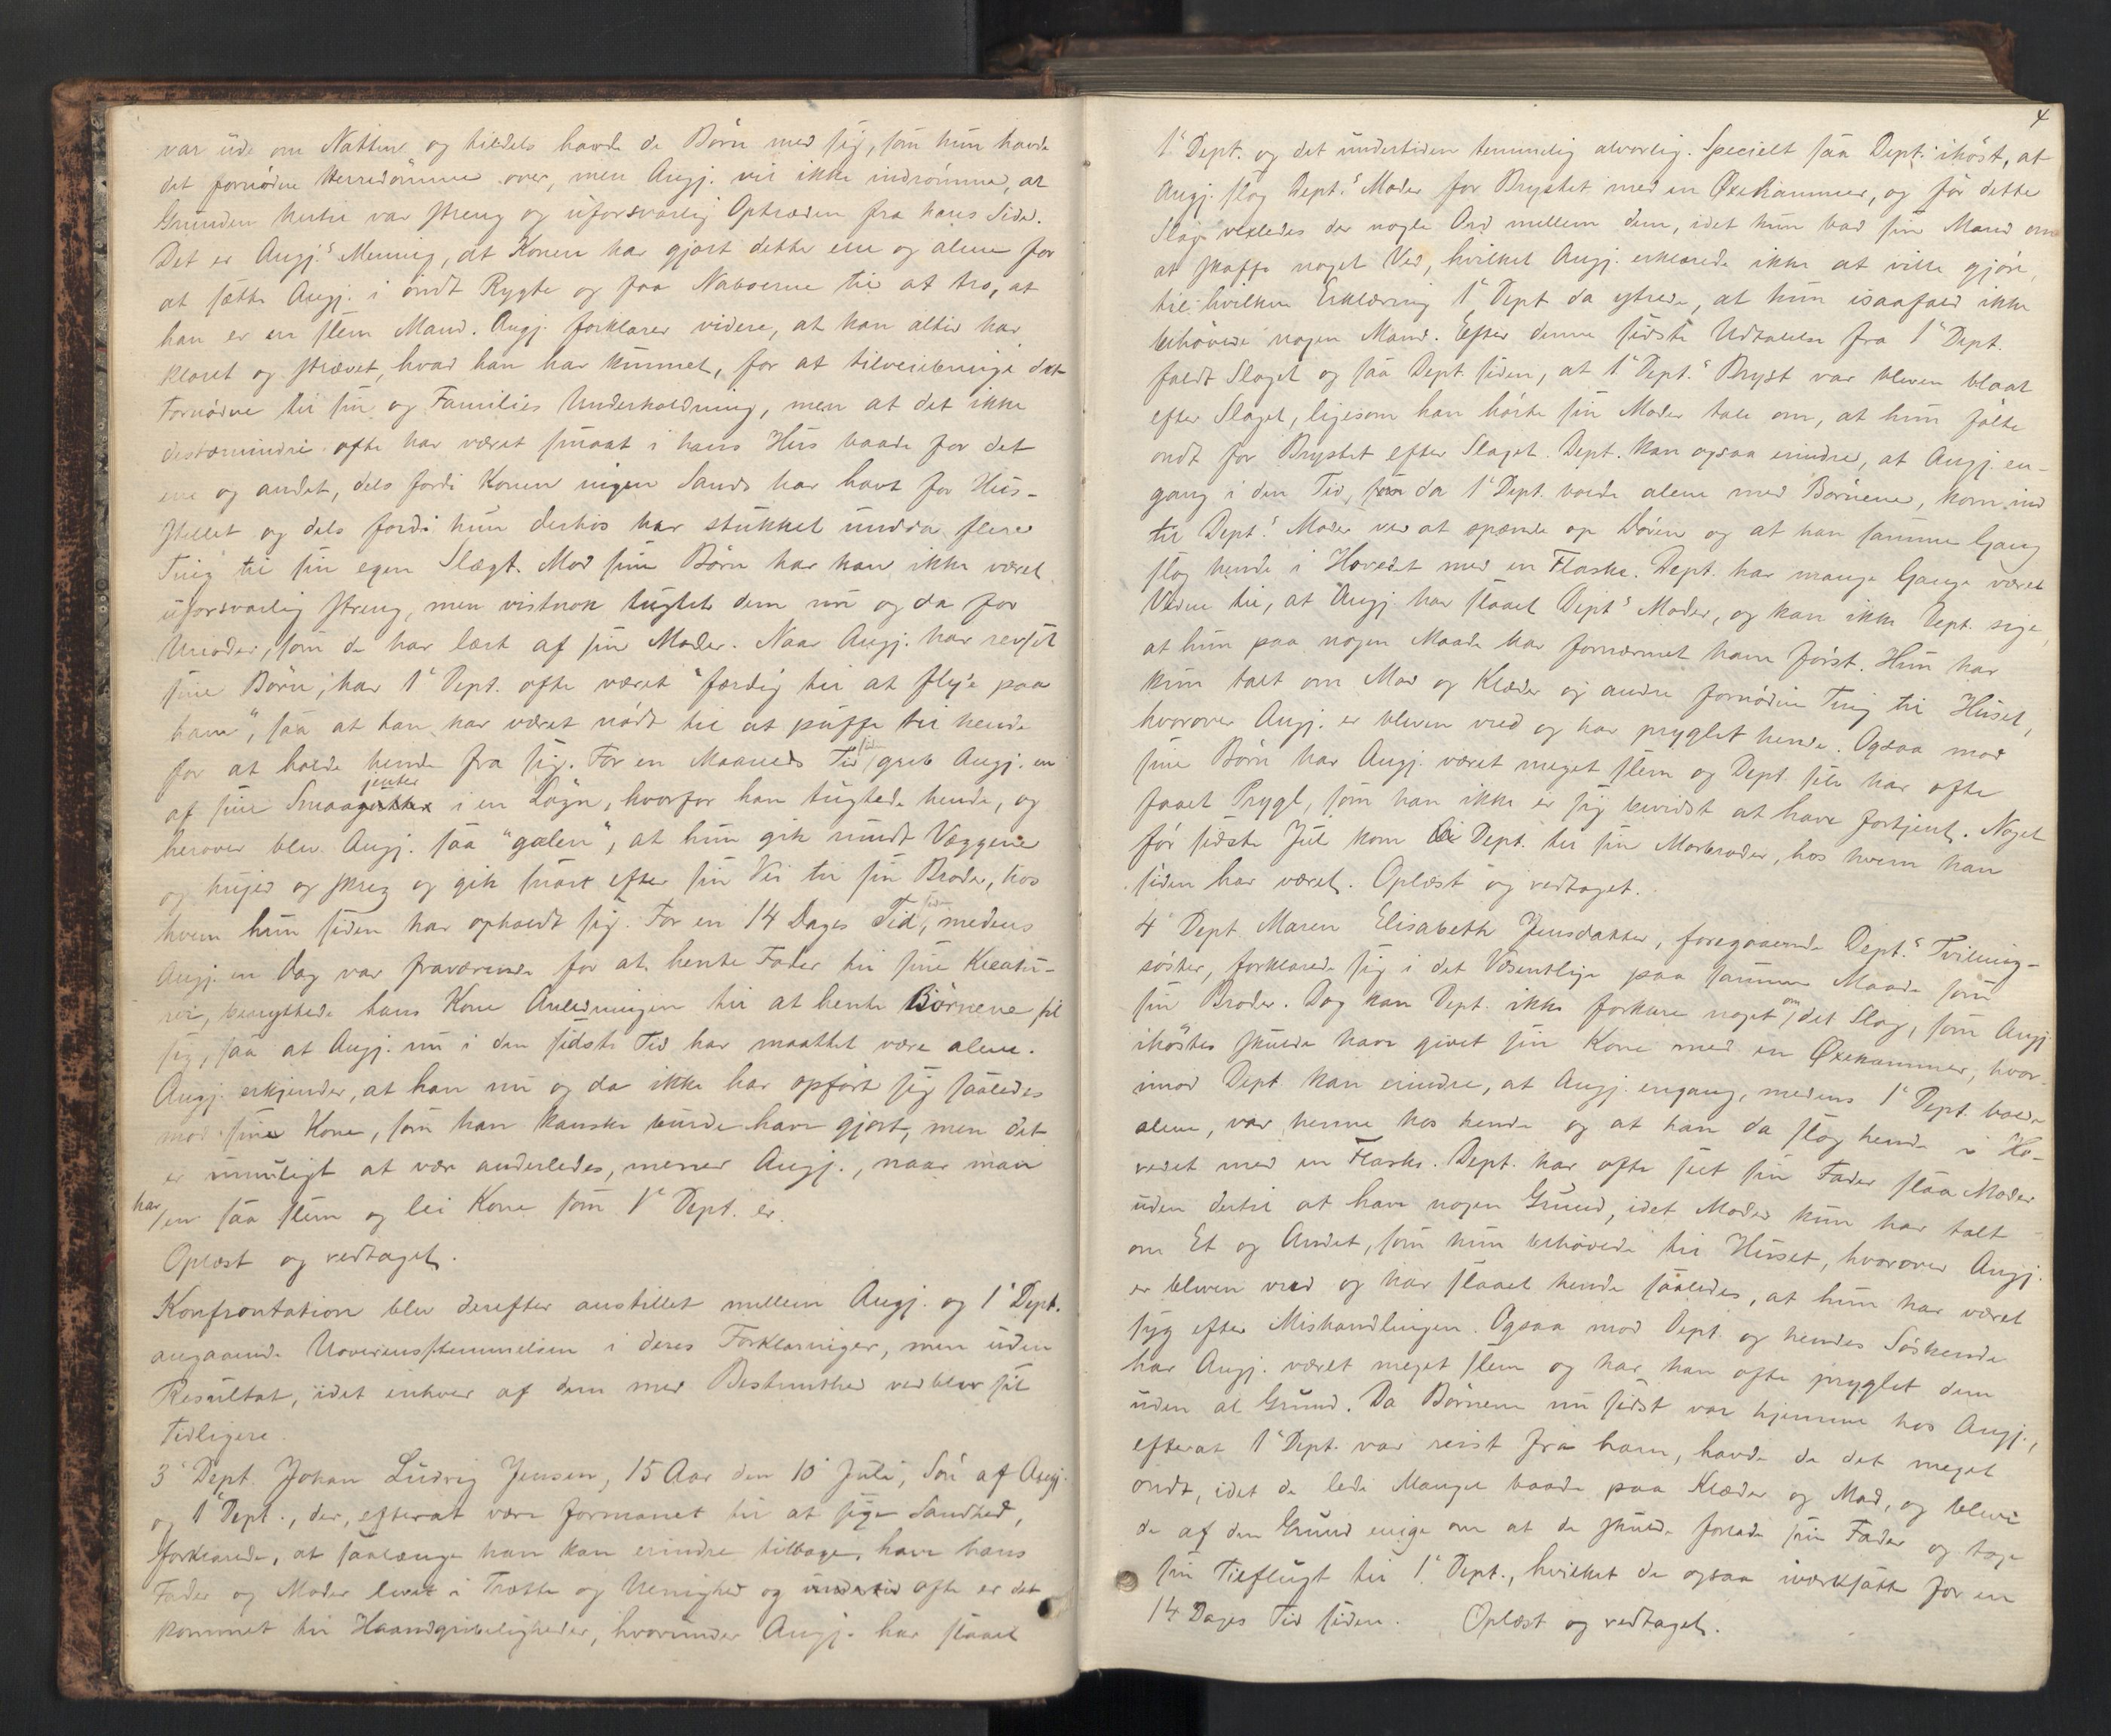 var ude om Natten og tildels havde de Børn med sig, som hun havde
det fornødne Herredømme over, men Angj. vil ikke indrømme, at
Grunden hertil var streng og uforsvarlig Optræden fra hans Side.
Det er Angj.s Mening, at Konen har gjort dette ene og alene for
at sætte Angj. i ondt Rygte og faa Naboerne til at tro, at
han er en slem Mand. Angj. forklarer videre, at han altid har
kloret og strævet, hvad han har kunnet, for at tilveiebringe det
Fornødne til sin og Families Underholdning, men at det ikke
destomindre ofte har været smaat i hans Hus baade for det
ene og andet, dels fordi Konen ingen Sands har havt for Hus-
stellet og dels fordi hun derhos har stukket undda flere
Ting til sin egen Slægt. Mod sine Børn har han ikke været
uforsvarlig streng, men vistnok tugtet dem nu og da for
Unoder, som de har lært af sin Moder. Naar Angj. har revset
sine Børn, har 1ste Dept. ofte været "færdig til at flyge paa
ham", saa at han har været nødt til at puffe til hende
for at holde hende fra sig. For en Maaneds Tid siden greb Angj. en
af sine Smaajenter i en Løgn, hvorfor han tugtede hende, og
herover blev Angj. saa "galen", at hun gik rundt Væggene
og hujed og skreg og gik snart efter sin Vei til sin Broder, hos
hvem hun siden har opholdt sig. For en 14 Dages Tid siden, medens
Angj. en Dag var fraværende for at hente Foder til sine Kreatu-
rer, benyttede hans Kone Anledningen til at hente Børnene til
sig, saa at Angj. nu i den sidste Tid har maattet være alene.
Angj. erkjender, at han nu og da ikke har opført sig saaledes
mod sin Kone, som han kanske burde have gjort, men det
er umuligt at være anderledes, mener Angj., naar man
har en saa slem og lei Kone som 1ste Dept. er.
Oplæst og vedtaget.
Konfrontation blev derefter anstillet mellem Angj. og 1ste Dept.
angaaende Uoverensstemmelsen i deres Forklaringer, men uden
Resultat, idet enhver af dem med Bestemthed vedblev sit
Tidligere.
3die Dept. Johan Ludvig Jensen, 15 Aar den 10de Juli, Søn af Angj.
og 1ste Dept., der, efterat være formanet til at sige Sandhed,
forklarede, at saalænge han kan erindre tilbage, have hans
Fader og Moder levet i Trætte og Uenighed og ofte er det
kommet til Haandgribeligheder, hvorunder Angj. har slaaet
4
1ste Dept. og det undertiden temmelig alvorlig. Specielt saa Dept. ihøst, at
Angj. slog Dept.s Moder for Brystet med en Øxehammer, og før dette
Slag vexledes der nogle Ord mellem dem, idet hun bad sin Mand om
at skaffe noget Ved, hvilket Angj. erklærede ikke at ville gjøre,
til hvilken Erklæring 1ste Dept da ytrede, at hun isaafald ikke
behøvede nogen Mand. Efter denne sidste Udtalelse fra 1ste Dept.
faldt Slaget og saa Dept. siden, at 1ste Dept.s Bryst var bleven blaat
efter Slaget, ligesom han hørte sin Moder tale om, at hun følte
ondt for Brystet efter Slaget. Dept. kan ogsaa erindre, at Angj. en-
gang i den Tid, da 1ste Dept. boede alene med Børnene, kom ind
til Dept.s Moder ved at spænde op Døren og at han samme Gang
slog hende i Hovedet med en Flaske. Dept. har mange Gange været
Vidne til, at Angj. har slaaet Dept.s Moder, og kan ikke Dept. sige,
at hun paa nogen Maade har fornærmet ham først. Hun har
kun talt om Mad og Klæder og andre fornødne Ting til Huset,
hvorover Angj. er bleven vred og har pryglet hende. Ogsaa mod
sine Børn har Angj. været meget slem og Dept. selv har ofte
faaet Prygl, som han ikke er sig bevidst at have fortjent. Noget
før sidste Jul kom Dept. til sin Morbroder, hos hvem han
siden har været. Oplæst og vedtaget.
4de Dept. Maren Elisabeth Jensdatter, foregaaende Dept.s Tvilling-
søster, forklarede sig i det Væsentlige paa samme Maade som
sin Broder. Dog kan Dept. ikke forklare noget om det Slag, som Angj
ihøstes skulde have givet sin Kone med en Øxehammer, hvor-
imod Dept. kan erindre, at Angj. engang, medens 1ste Dept. boede
alene, var henne hos hende og at han da slog hende i Ho-
vedet med en Flaske. Dept. har ofte seet sin Fader slaa Moder
uden dertil at have nogen Grund, idet Moder kun har talt
om Et og Andet, som hun behøvede til Huset, hvorover Angj.
er bleven vred og har slaaet hende saaledes, at hun har været
syg efter Mishandlingen. Ogsaa mod Dept. og hendes Søskende
har Angj. været meget slem og har han ofte pryglet dem
uden al Grund. Da Børnene nu sidst var hjemme hos Angj.,
efterat 1ste Dept. var reist fra ham, havde de det meget
ondt, idet de lede Mangel baade paa Klæder og Mad, og bleve
de af den Grund enige om at de skulde forlade sin Fader og tage
sin Tilflugt til 1ste Dept., hvilket de ogsaa iværksatte for en
14 Dages Tid siden. Oplæst og vedtaget.